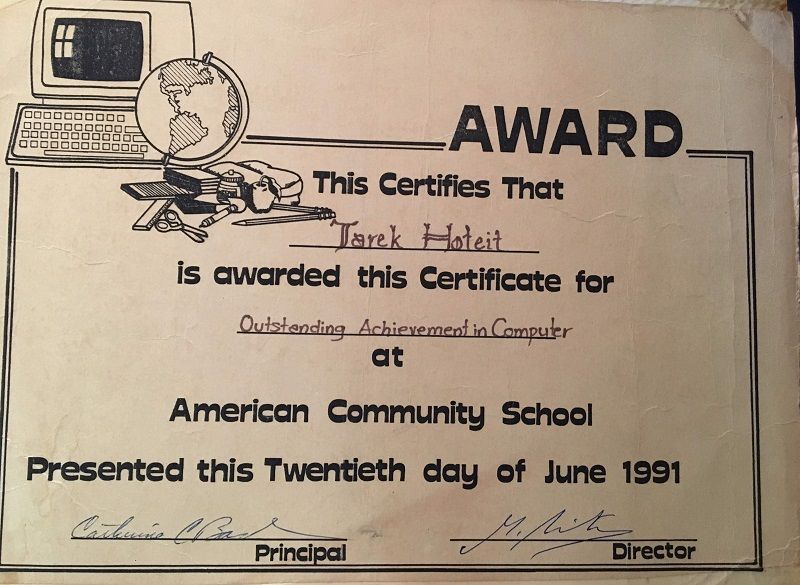 AWARD
This Certifies That
Tarek Hoteit
is awarded this Certificate for
Outstanding Achievement in Computer
at
American Community School
Presented this Twentieth day of June 1991
Catherine C
Principal
Director